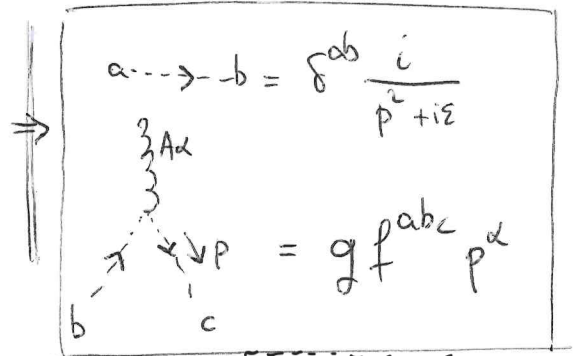 ⇒ a ⇢ b = δ^{ab} i / (p² + iε)
Aα
p = g f^{abc} p^α
b c